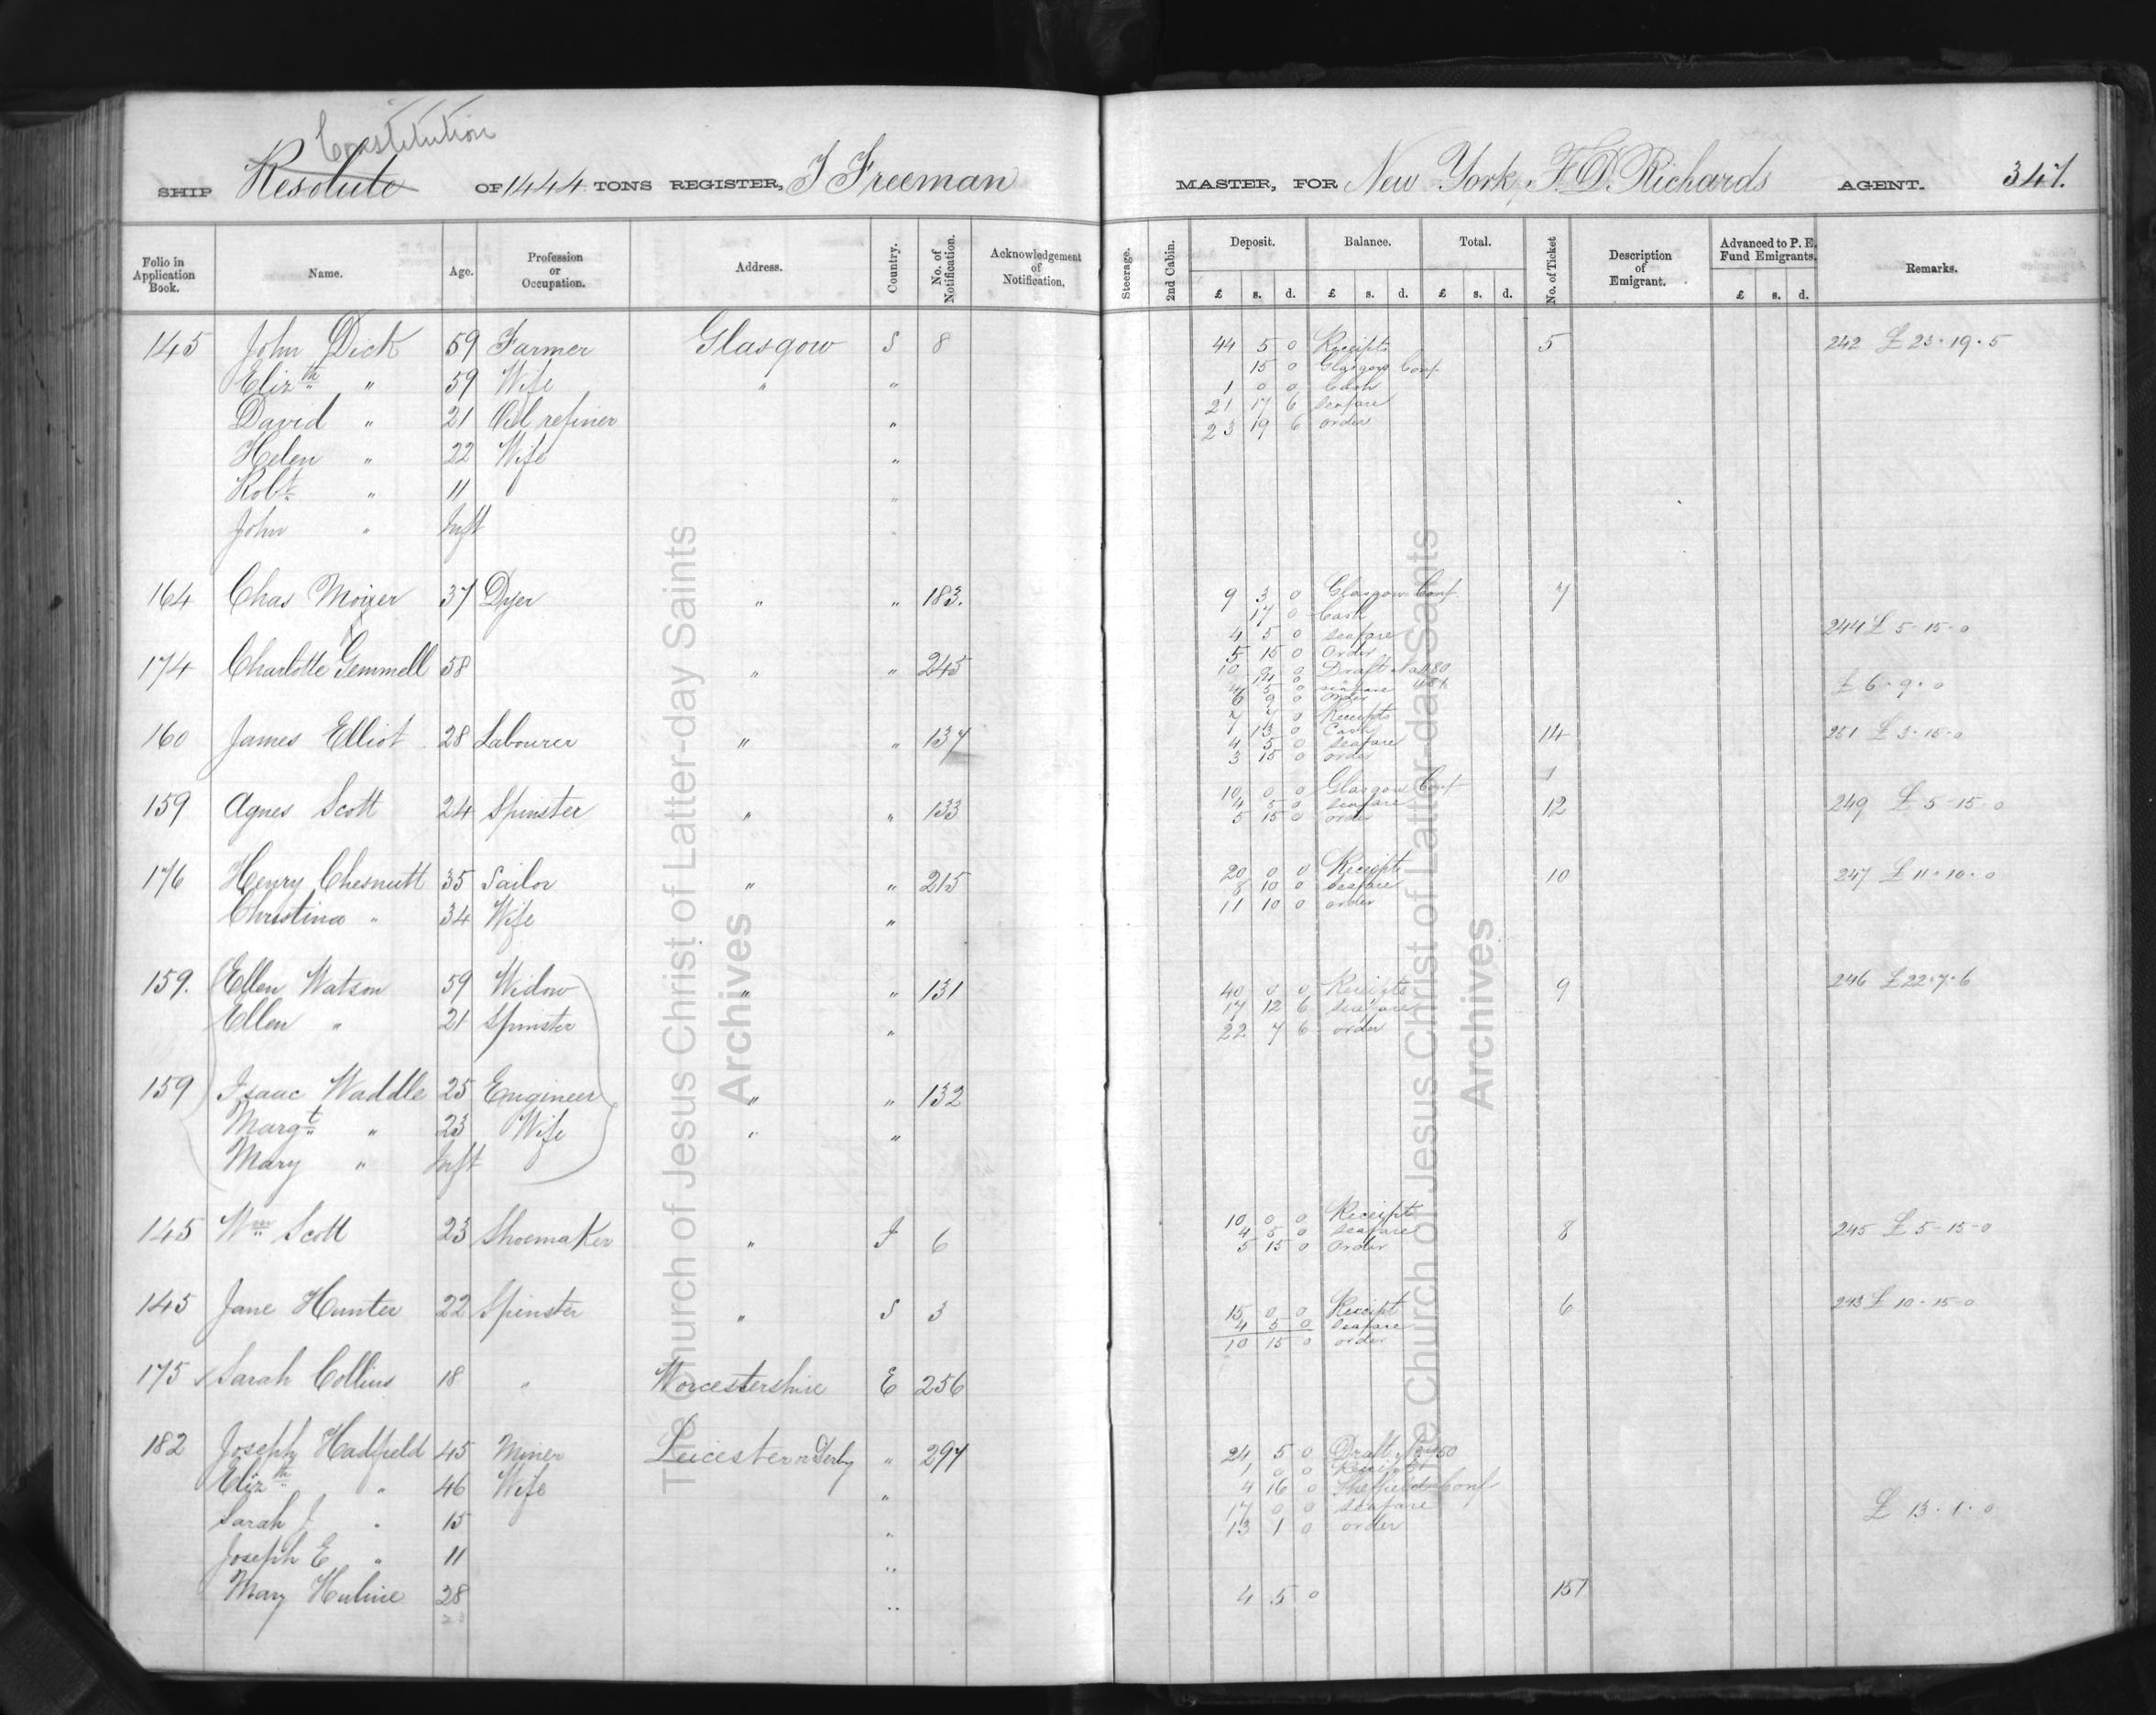 Constitution
SHIP Resolute OF 1444 TONS REGISTER, J Freeman MASTER, FOR New York, F. D. Richards AGENT. 347.
Folio in Application Book. Name. Age. Profession or Occupation. Address. Country. No. of Notification. Acknowledgement of Notification. Steerage. 2nd Cabin. Deposit. Balance. Total. No. of Ticket Description of Emigrant. Advanced to P. E. Fund Emigrants. Remarks.
£ s. d. £ s. d. £ s. d. £ s. d.
145 John Dick 59 Farmer Glasgow S 8 44 5 0 Receipts 5 242 £ 23.19.5
15 0 Glasgow Conf
Elizth " 59 Wife " " 1 0 0 Cash
21 17 6 seafare
David " 21 Oil refiner " 23 19 6 order
Helen " 22 Wife "
Robt " 11 "
John " Inft "
164 Chas 37 Dyer " " 183. 9 3 0 Glasgow Conf. 7
17 0 Cash
4 5 0 seafare 244 £ 5-15-0
5 15 0 Order
174 Charlotte Gemmell 58 " " 245 10 0 0 Draft No 480
14 0
4 5 0 seafare £ 6.9.0
6 9 0 order
7 7 0 Receipts
160 James Elliot 28 Labourer " " 137 1 13 0 Cash 14 251 £ 3-15-0
4 5 0 seafare
3 15 0 order
10 0 0 Glasgow Conf
159 Agnes Scott 24 Spinster " " 133 4 5 0 seafare 12 249 £ 5-15-0
5 15 0 order
176 Henry Chesnutt 35 Sailor " " 215 20 0 0 Receipts 10 247 £ 11.10.0
8 10 0 seafare
Christina " 34 Wife " 11 10 0 order
159. Ellen Watson 59 Widow " " 131 40 0 0 Receipts 9 246 £22.7.6
Ellen " 21 Spinster " 17 12 6 seafare
22 7 6 order
159 Isaac Waddle 25 Engineer " " 132
Margt " 23 Wife " "
Mary " Inft
145 Wm Scott 23 Shoemaker " I 6 10 0 0 Receipt 8 245 £ 5-15-0
4 5 0 seafare
5 15 0 Order
145 Jane Hunter 22 Spinster " S 3 15 0 0 Receipt 6 243 £ 10-15-0
4 5 0 seafare
10 15 0 order
175 Sarah Collins 18 " Worcestershire E 256
182 Joseph Hadfield 45 Miner Leicester n Derby " 297 24 5 0 Draft
1 0 0 Receipt
Elizth " 46 Wife " 4 16 0 Sheffield Conf
17 0 0 seafare £ 13.1.0
Sarah J. " 15 " 13 1 0 order
Joseph E " 11 "
Mary Hulme 28 " 4 5 0 151
23
The Church of Jesus Christ of Latter-day Saints
Archives
The Church of Jesus Christ of Latter-day Saints
Archives